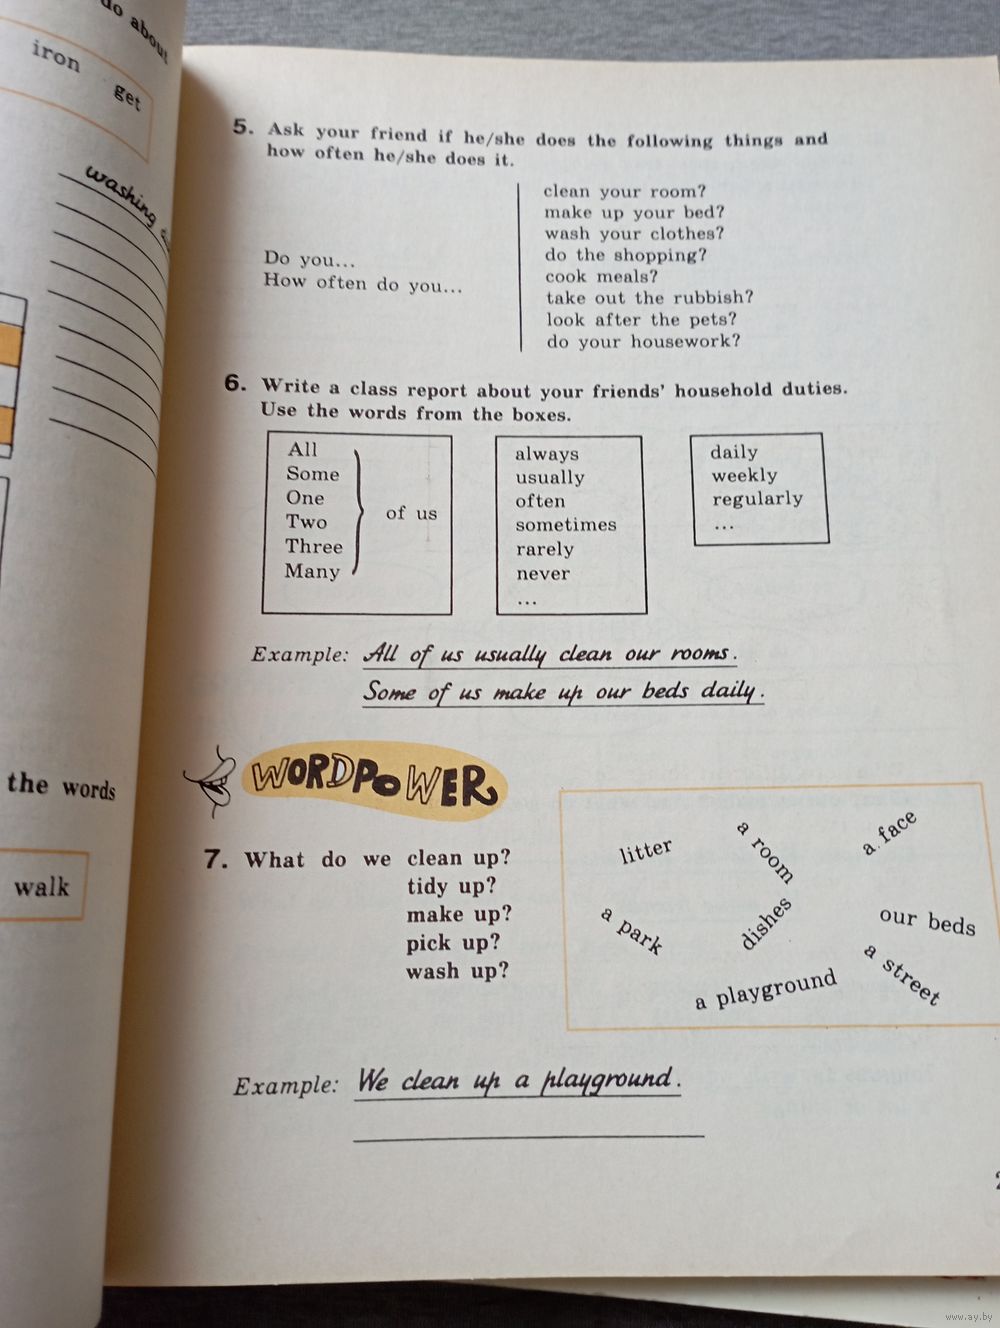 do about
iron
get
washing
the words
walk
5. Ask your friend if he/she does the following things and
how often he/she does it.
Do you...
How often do you...
clean your room?
make up your bed?
wash your clothes?
do the shopping?
cook meals?
take out the rubbish?
look after the pets?
do your housework?
6. Write a class report about your friends' household duties.
Use the words from the boxes.
All
Some
One
Two
Three
Many
of us
always
usually
often
sometimes
rarely
never
...
daily
weekly
regularly
...
Example: All of us usually clean our rooms.
Some of us make up our beds daily.
WORDPOWER
7. What do we clean up?
tidy up?
make up?
pick up?
wash up?
litter
a room
a face
a park
dishes
our beds
a street
a playground
Example: We clean up a playground.
www.ay.by